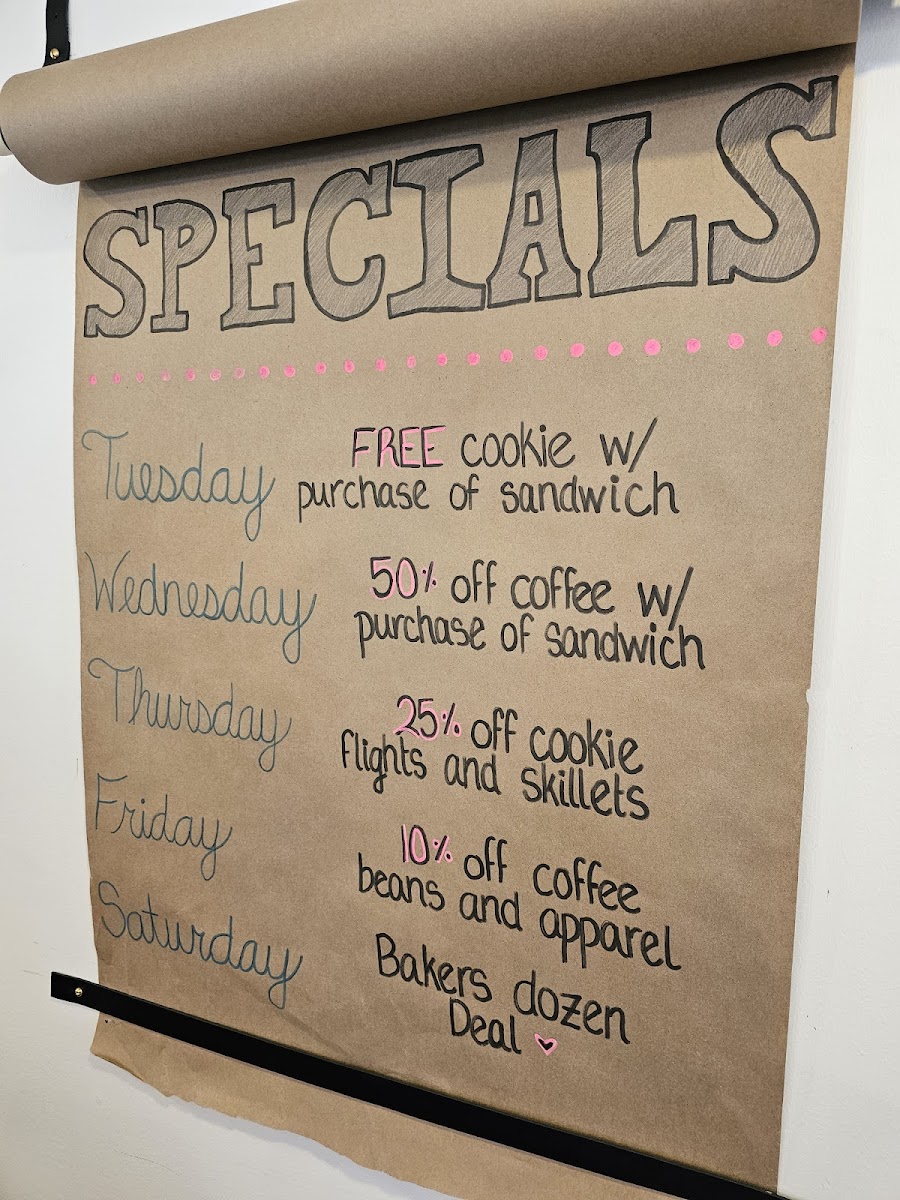 SPECIALS
Tuesday FREE cookie w/
purchase of sandwich
Wednesday 50% off coffee w/
purchase of sandwich
Thursday 25% off cookie
flights and skillets
Friday 10% off coffee
beans and apparel
Saturday Bakers dozen
Deal